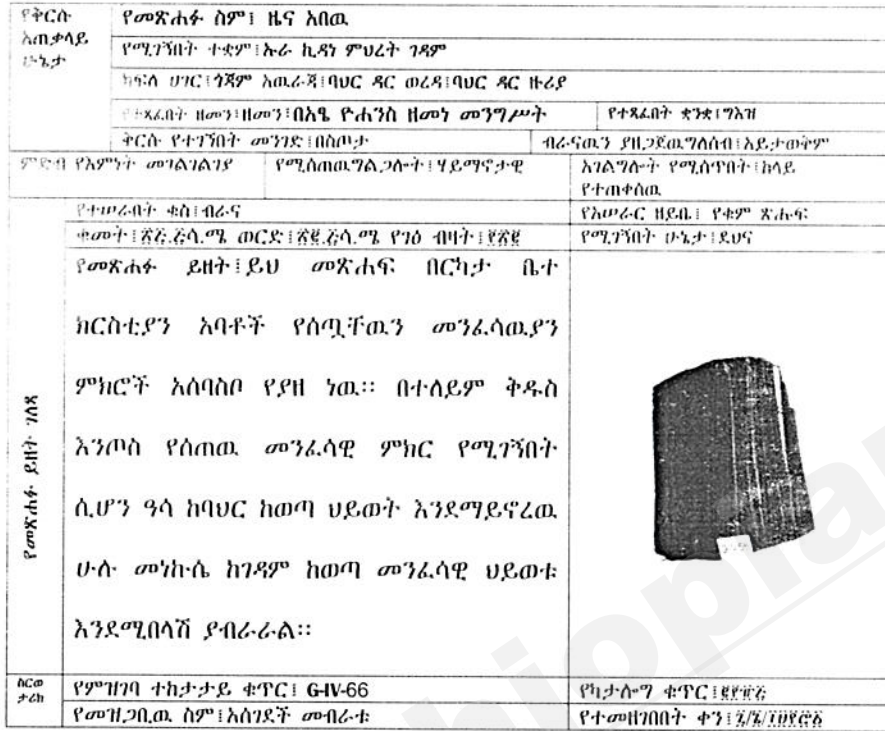 የቅርሱ አጠቃላይ ሁኔታ
የመጽሐፉ ስም፤ ዜና አበዉ
የሚገኝበት ተቋም፤ኡራ ኪዳነ ምህረት ገዳም
ክፍለ ሀገር፤ጎጃም አዉራጃ፤ባህር ዳር ወረዳ፤ባህር ዳር ዙሪያ
የተጻፈበት ዘመን፤ዘመን፤በአፄ ዮሐንስ ዘመነ መንግሥት
የተጻፈበት ቋንቋ፤ግእዝ
ቅርሱ የተገኘበት መንገድ፤በስጦታ
ብራናዉን ያዘጋጀዉግለሰብ፤አይታወቅም
ምድብ የእምነት መገልገልገያ
የሚሰጠዉግልጋሎት፤ሃይማኖታዊ
አገልግሎት የሚሰጥበት፤ከላይ
የተጠቀሰዉ
የተሠራበት ቁስ፤ብራና
የአሠራር ዘይቤ፤ የቁም ጽሑፍ
ቁመት፤ ሳ.ሜ ወርድ፤ ሳ.ሜ የገፅ ብዛት፤
የሚገኝበት ሁኔታ፤ደህና
የመጽሐፉ ይዘት ገለጻ
የመጽሐፉ ይዘት፤ይህ መጽሐፍ በርካታ ቤተ
ክርስቲያን አባቶች የሰጧቸዉን መንፈሳዉያን
ምክሮች አሰባስቦ የያዘ ነዉ፡፡ በተለይም ቅዱስ
እንጦስ የሰጠዉ መንፈሳዊ ምክር የሚገኝበት
ሲሆን ዓሳ ከባህር ከወጣ ህይወት እንደማይኖረዉ
ሁሉ መነኩሴ ከገዳም ከወጣ መንፈሳዊ ህይወቱ
እንደሚበላሽ ያብራራል፡፡
ስርወ ታሪክ
የምዝገባ ተከታታይ ቁጥር፤ G-IV-66
የካታሎግ ቁጥር፤
የመዝጋቢዉ ስም፤አሰገደች መብራቱ
የተመዘገበበት ቀን፤